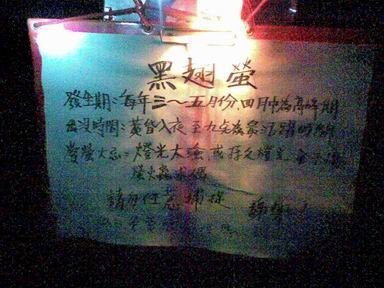 黑翅螢
發生期：每年三～五月份四月中為高峰期
出沒時間：黃昏入夜至九點為最活躍時段
賞螢大忌：燈光太強或
螢火蟲求偶
請勿任意捕捉 謝謝